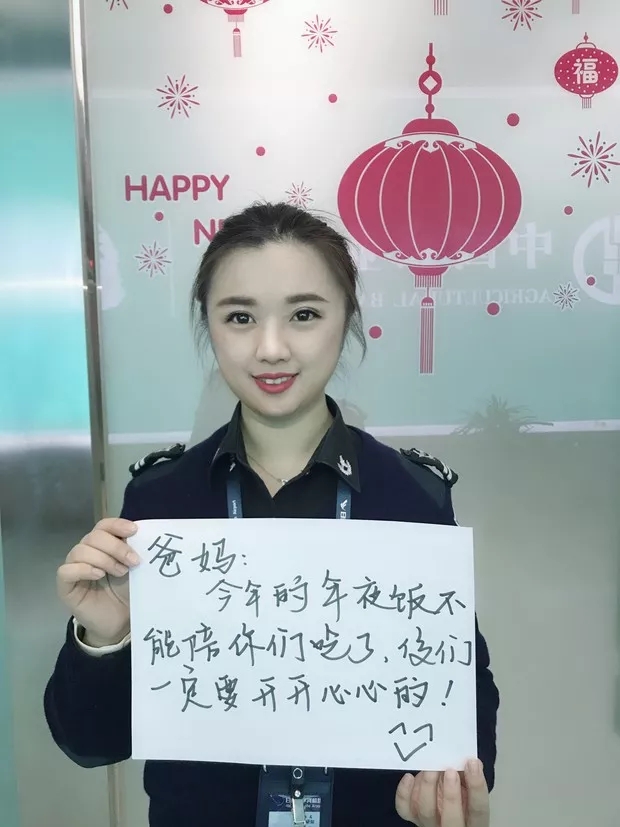 福
HAPPY
爸妈:
今年的年夜饭不
能陪你们吃了,你们
一定要开开心心的!